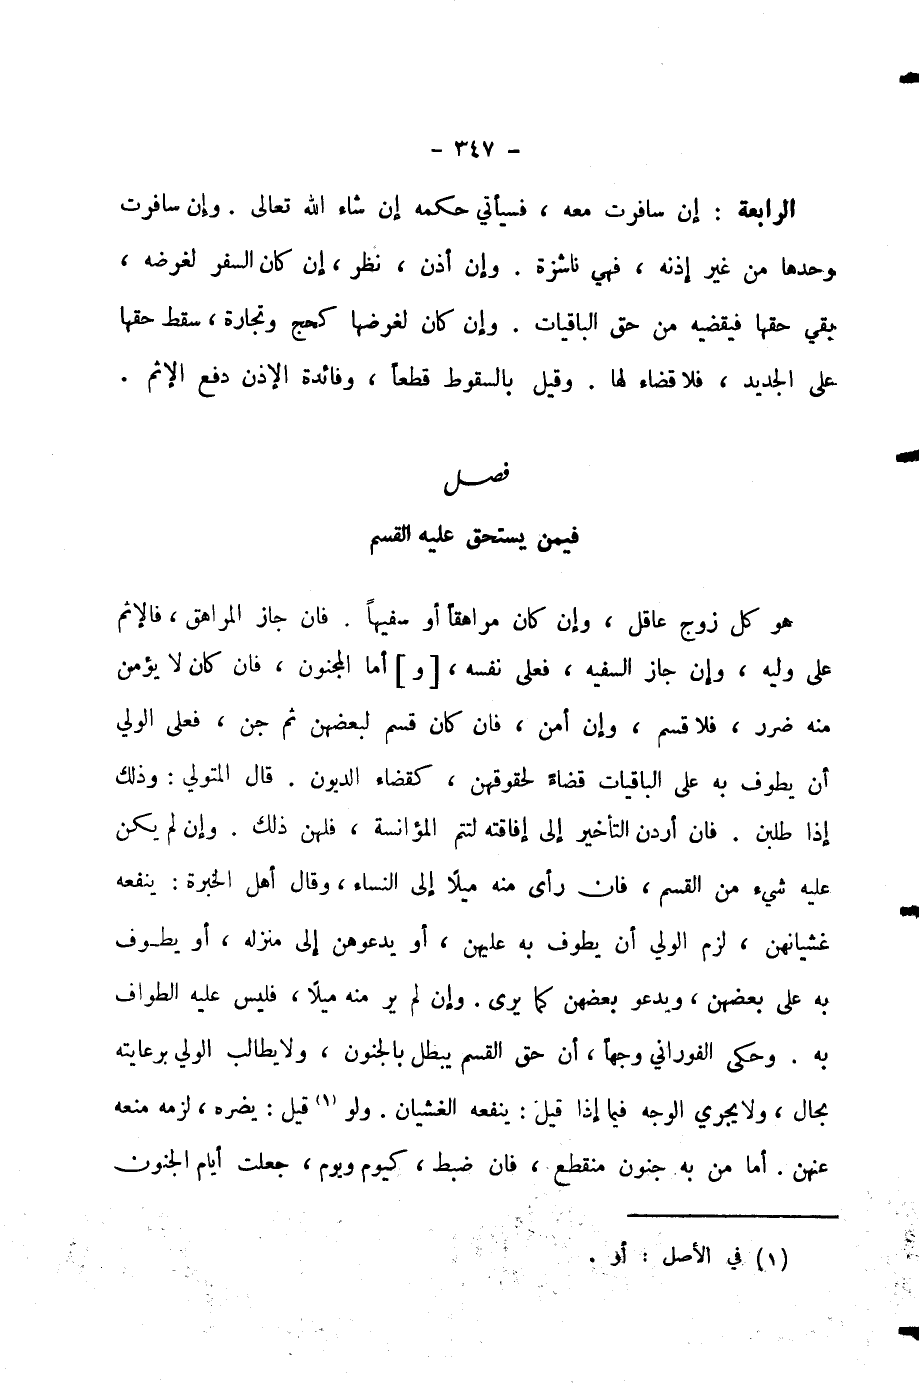 - ٣٤٧ -
الرابعة : إن سافرت معه ، فسيأتي حكمه إن شاء الله تعالى . وإن سافرت
وحدها من غير إذنه ، فهي ناشزة . وإن أذن ، نظر ، إن كان السفر لغرضه ،
بقي حقها فيقضيه من حق الباقيات . وإن كان لغرضها كحج وتجارة ، سقط حقها
على الجديد ، فلا قضاء لها . وقيل بالسقوط قطعاً ، وفائدة الإذن دفع الإثم .
فصل
فيمن يستحق عليه القسم
هو كل زوج عاقل ، وإن كان مراهقاً أو سفيهاً . فان جاز المراهق ، فالإثم
على وليه ، وإن جاز السفيه ، فعلى نفسه ، [ و ] أما المجنون ، فان كان لا يؤمن
منه ضرر ، فلا قسم ، وإن أمن ، فان كان قسم لبعضهن ثم جن ، فعلى الولي
أن يطوف به على الباقيات قضاءً لحقوقهن ، كقضاء الديون . قال المتولي : وذلك
إذا طلبن . فان أردن التأخير إلى إفاقته لتتم المؤانسة ، فلهن ذلك . وإن لم يكن
عليه شيء من القسم ، فان رأى منه ميلًا إلى النساء ، وقال أهل الخبرة : ينفعه
غشيانهن ، لزم الولي أن يطوف به عليهن ، أو يدعوهن إلى منزله ، أو يطوف
به على بعضهن ، ويدعو بعضهن كما يرى . وإن لم ير منه ميلًا ، فليس عليه الطواف
به . وحكى الفوراني وجهاً ، أن حق القسم يبطل بالجنون ، ولا يطالب الولي برعايته
بحال ، ولا يجري الوجه فيما إذا قيل : ينفعه الغشيان . ولو (١) قيل : يضره ، لزمه منعه
عنهن . أما من به جنون منقطع ، فان ضبط ، كيوم ويوم ، جعلت أيام الجنون
(١) في الأصل : أو .